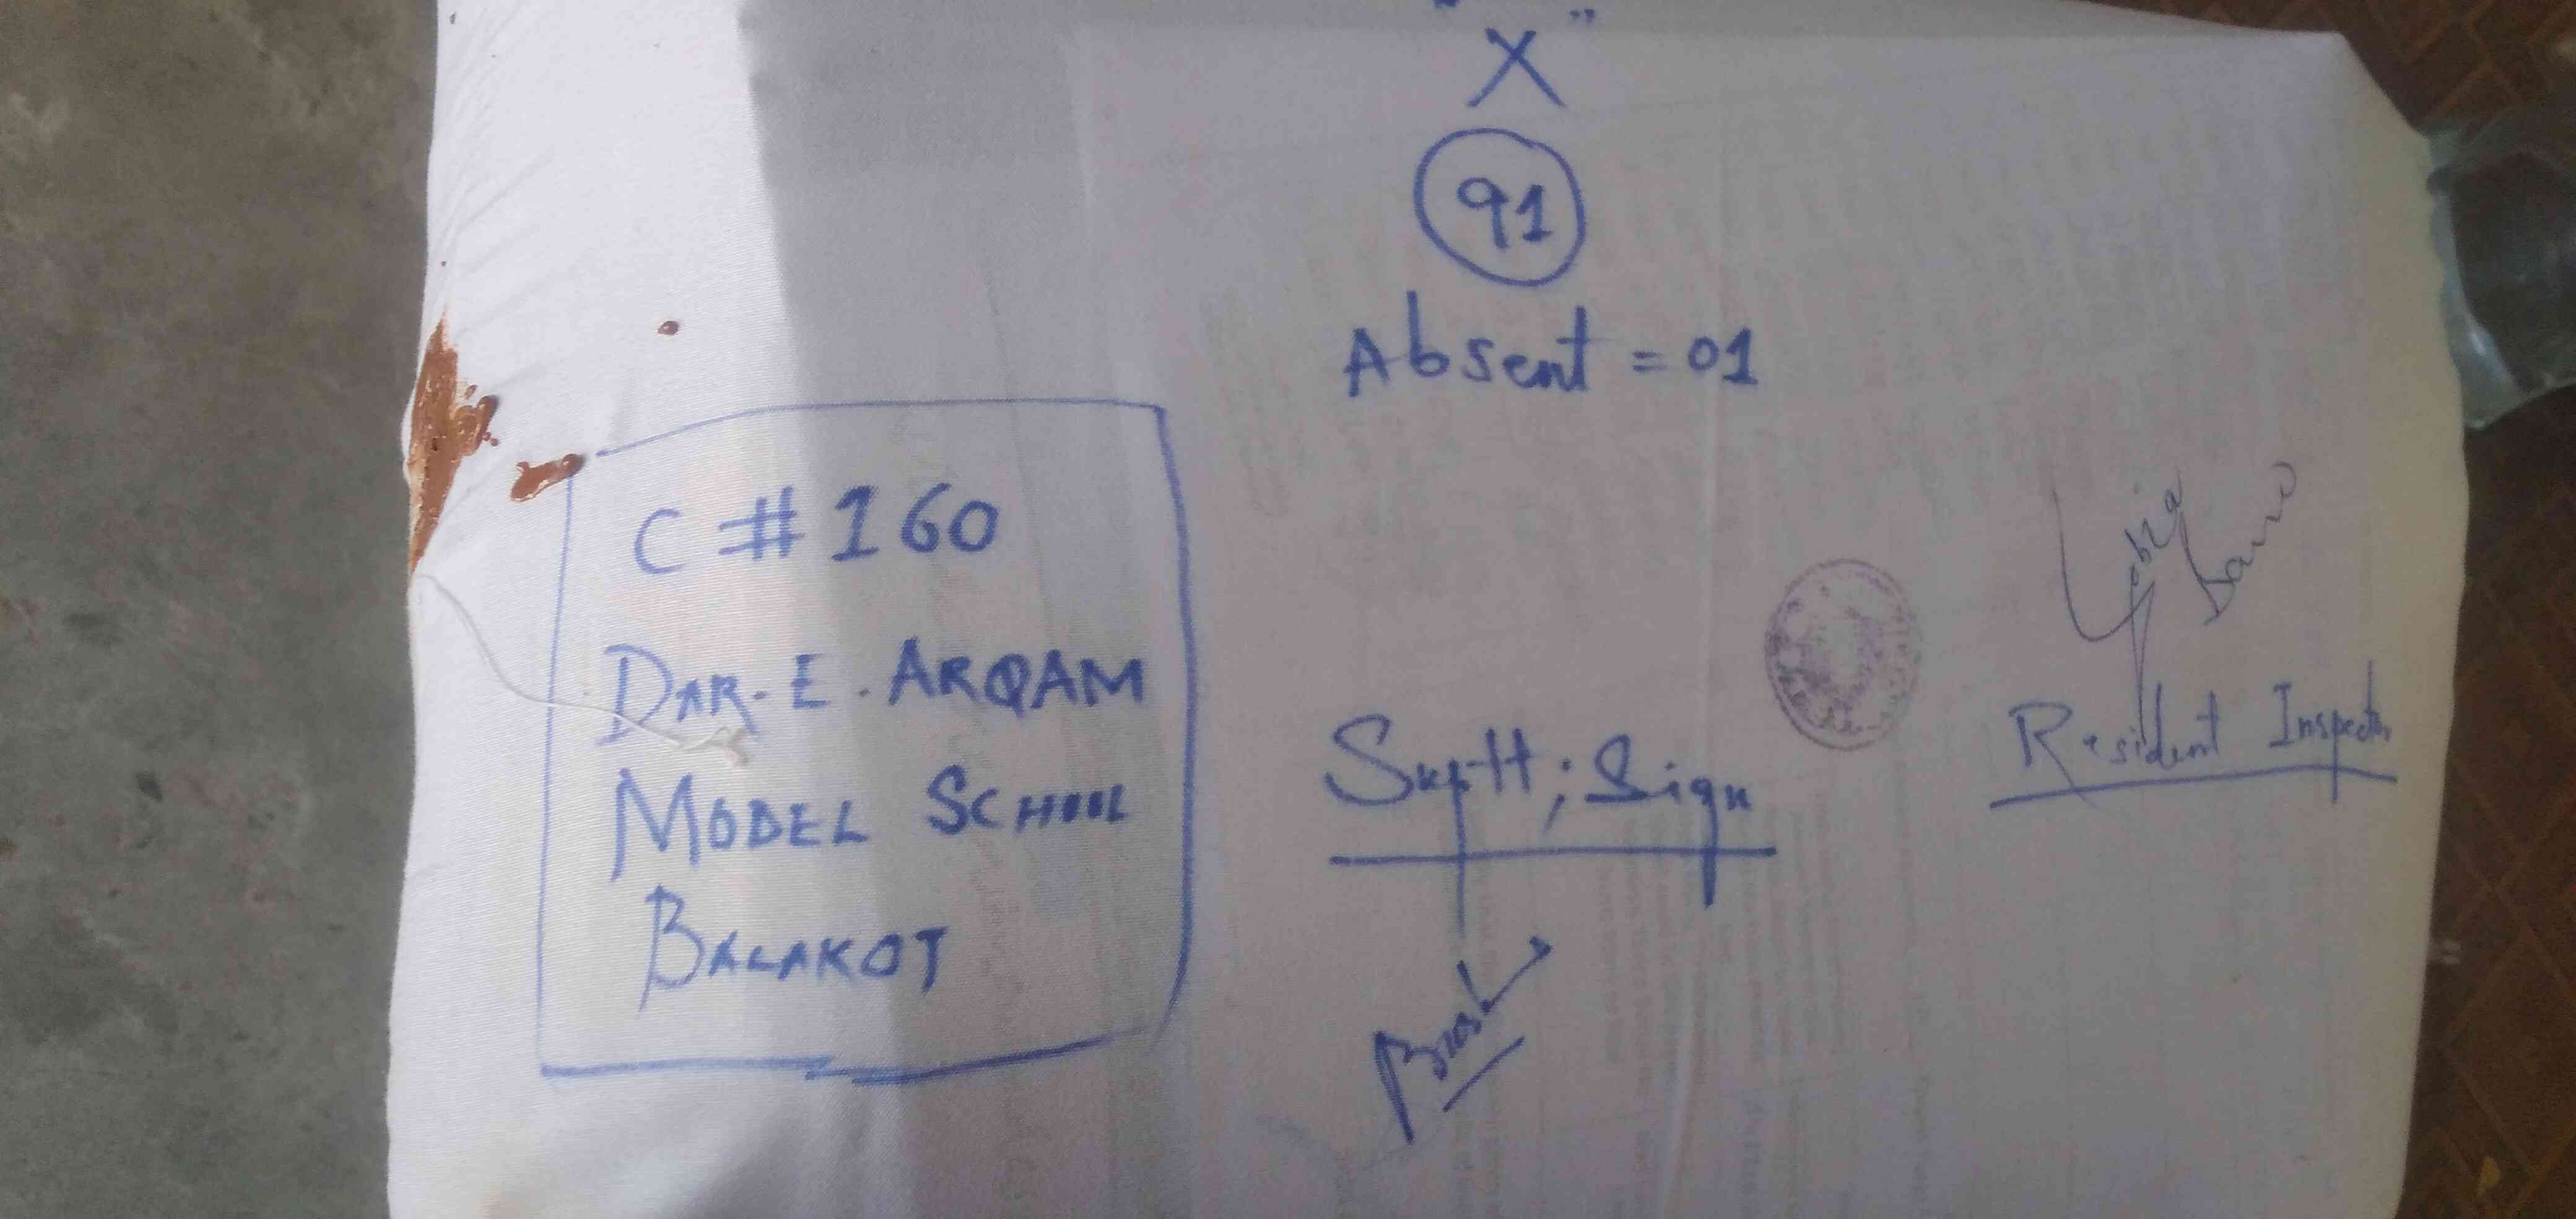 "X"
91
Absent = 01
C # 160
DAR-E. ARQAM
MODEL SCHOOL
BALAKOT
Suptt; Sign
Resident Inspector